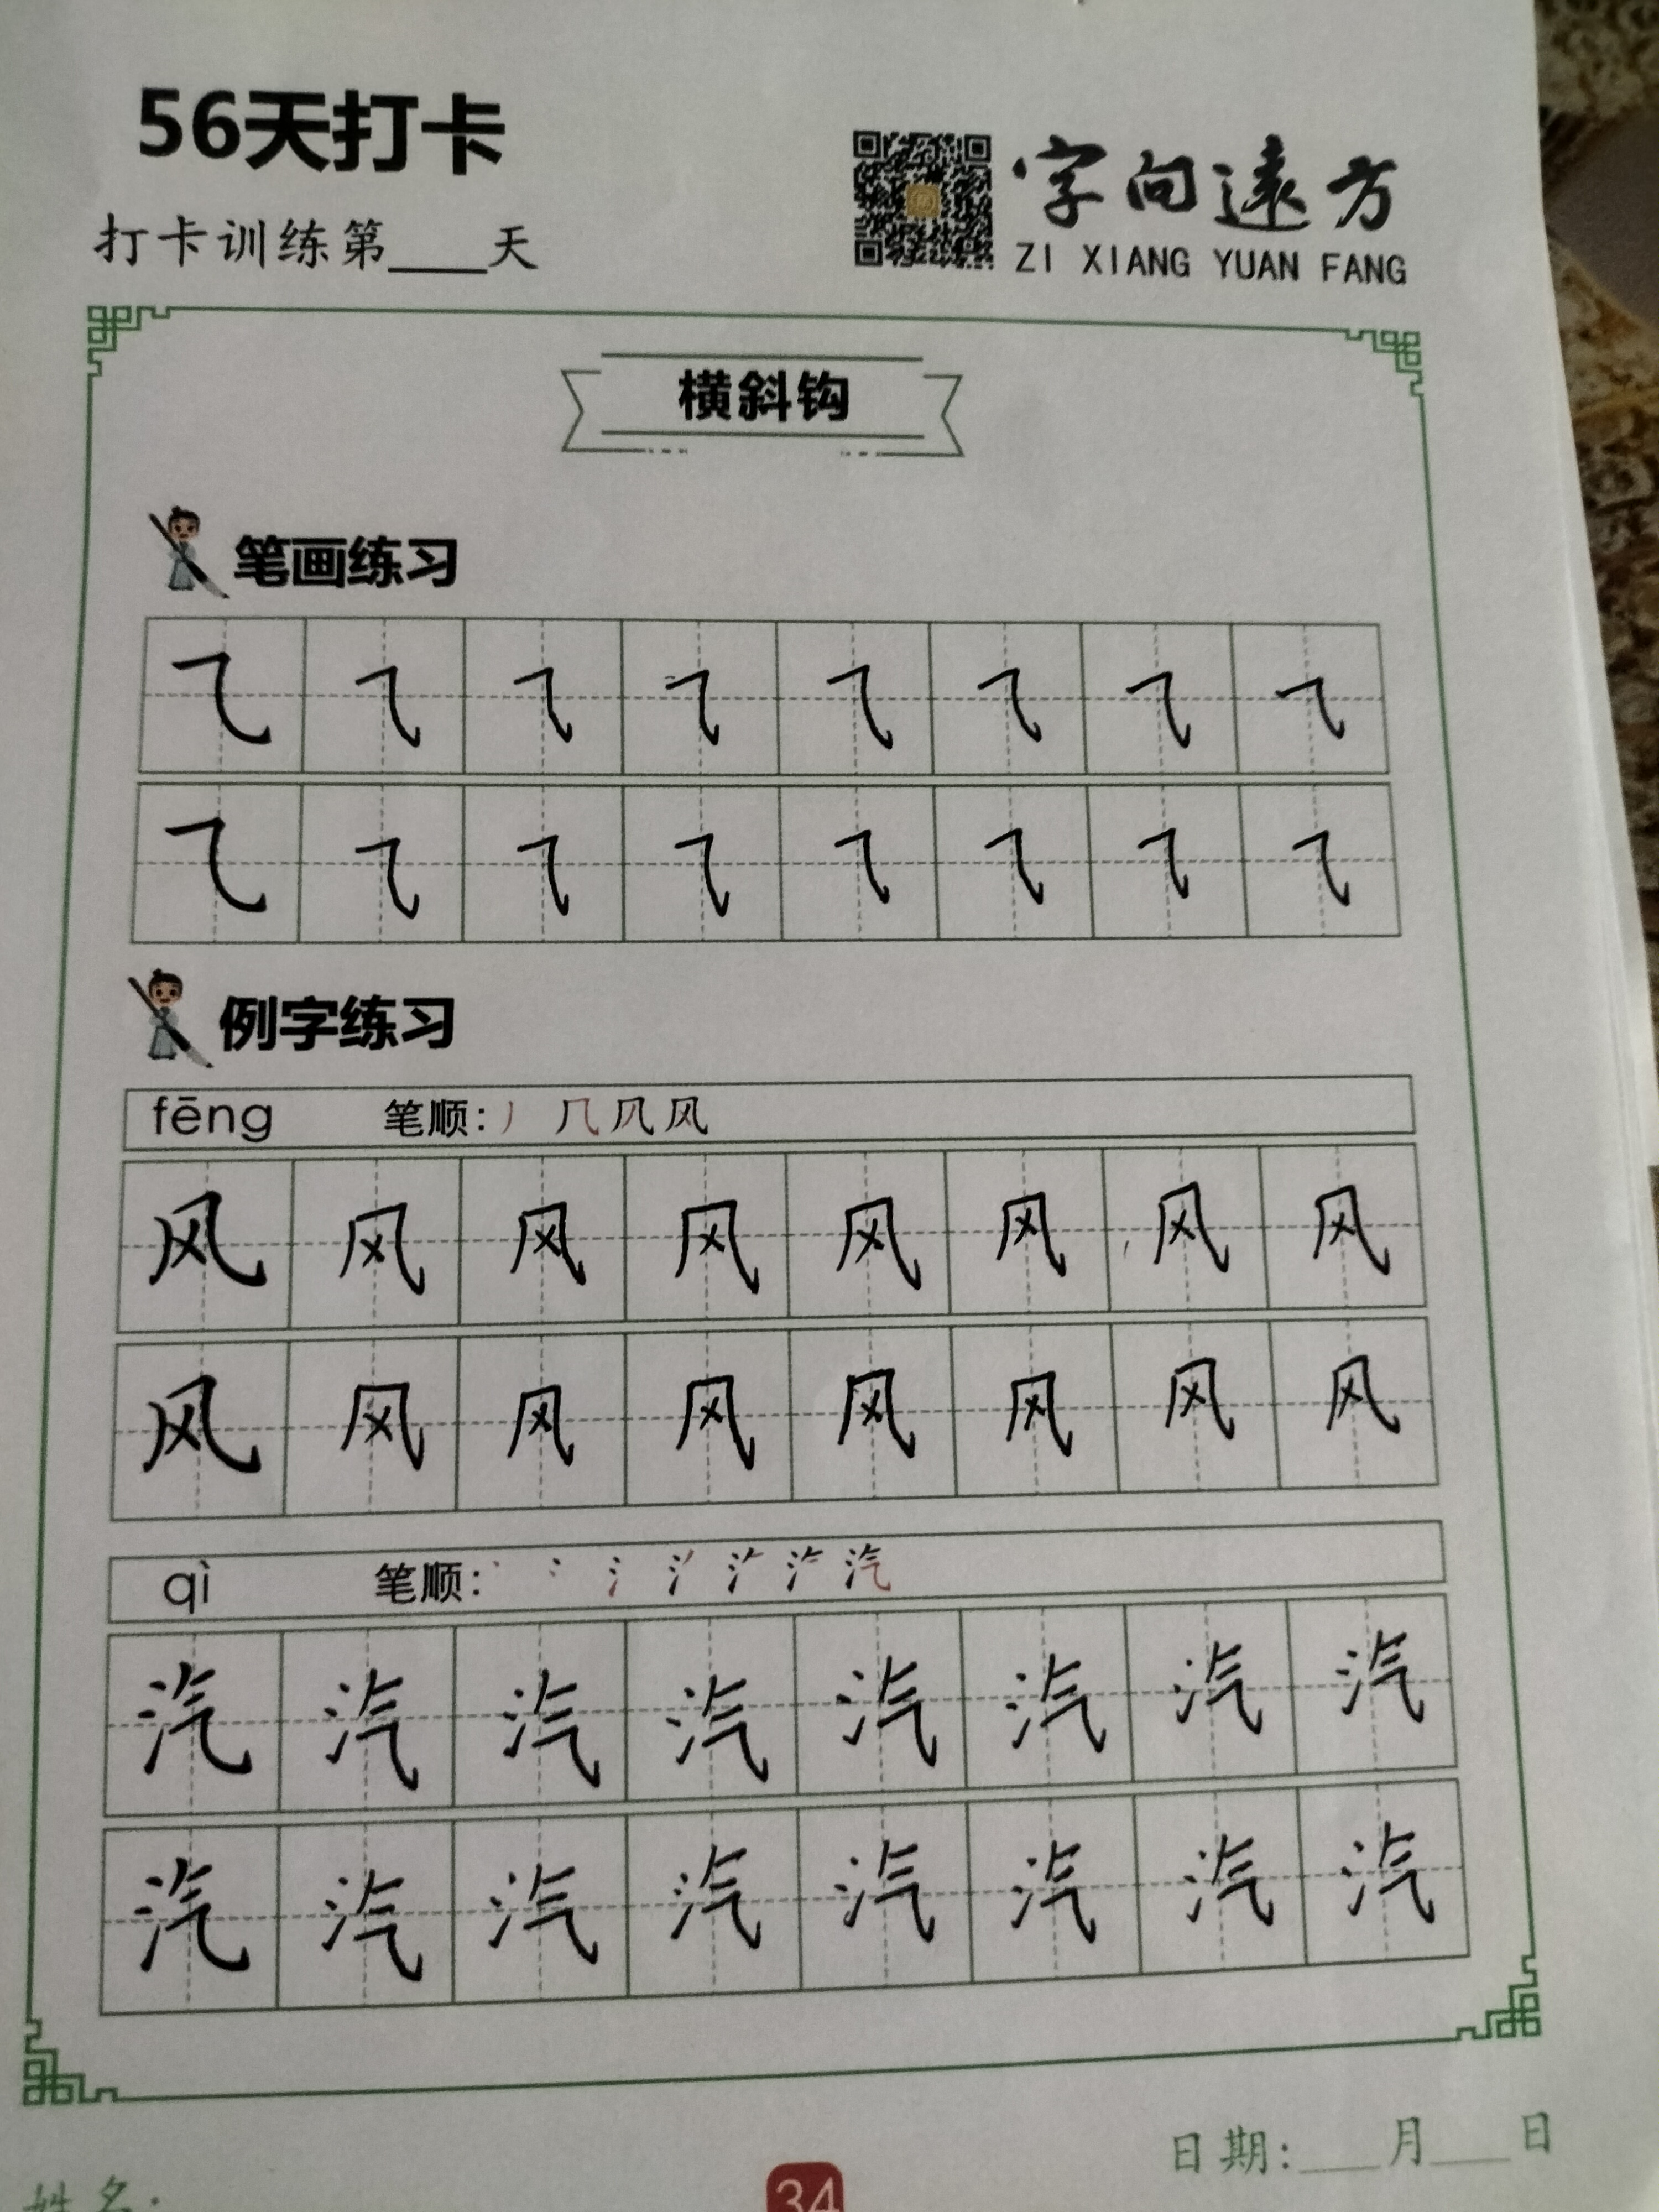 56天打卡
打卡训练第____天
字向遠方
ZI XIANG YUAN FANG
横斜钩
笔画练习
⺄ ⺄ ⺄ ⺄ ⺄ ⺄ ⺄ ⺄
⺄ ⺄ ⺄ ⺄ ⺄ ⺄ ⺄ ⺄
例字练习
fēng 笔顺: 丿 几 风
风 风 风 风 风 风 风 风
风 风 风 风 风 风 风 风
qì 笔顺: 丶 冫 氵 汽
汽 汽 汽 汽 汽 汽 汽 汽
汽 汽 汽 汽 汽 汽 汽 汽
日期:___月___日
姓名:
34